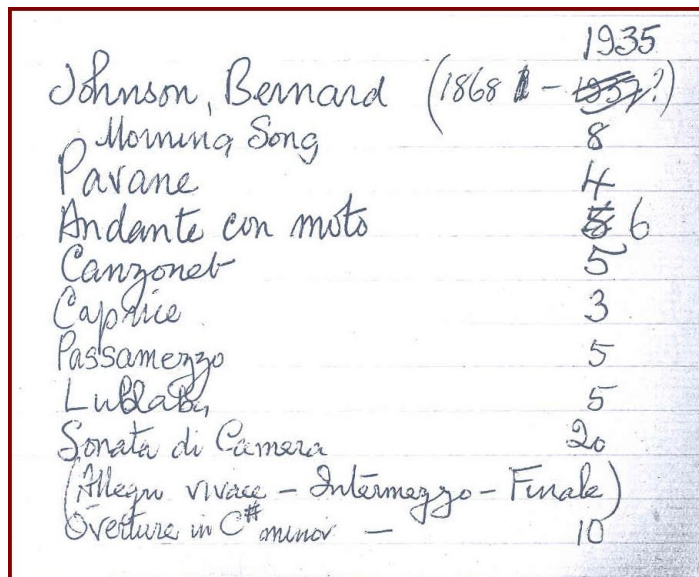 1935
Johnson, Bernard (1868 - ?)
Morning Song 8
Pavane 4
Andante con moto 6
Canzonet 5
Caprice 3
Passamezzo 5
Lullaby 5
Sonata di Camera 20
(Allegro vivace - Intermezzo - Finale)
Overture in C# minor — 10